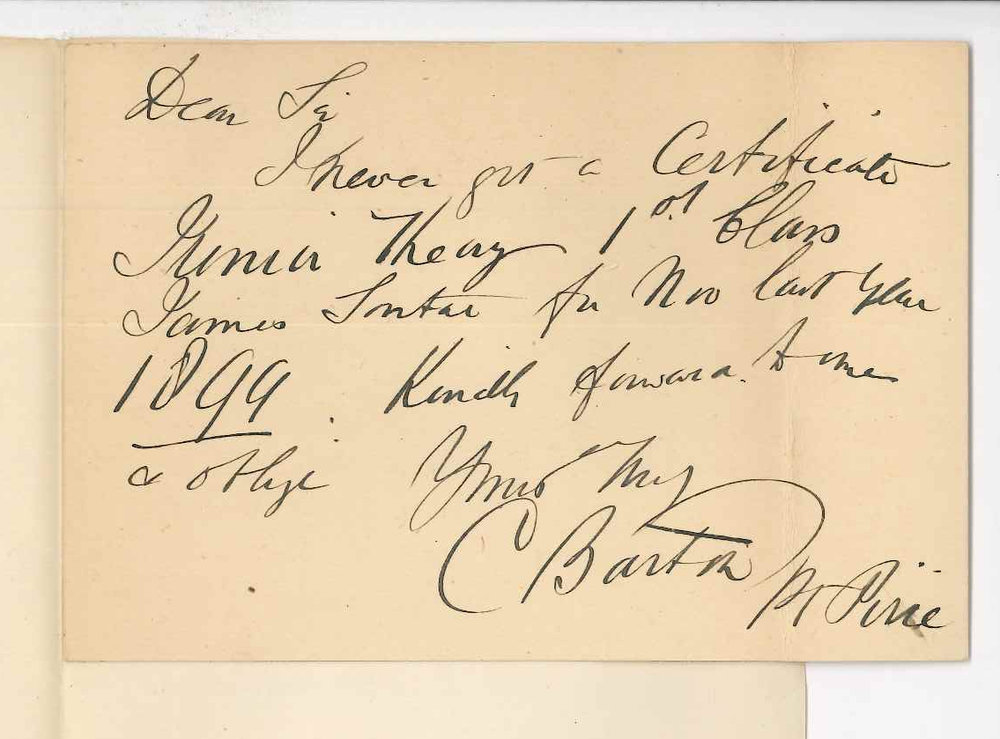 Dear Sir
I never got a Certificate
Junior Theory 1st Class
James for Nov last year
1899. Kindly forward to me
& oblige Yours truly
C Barton
Mt Pirie